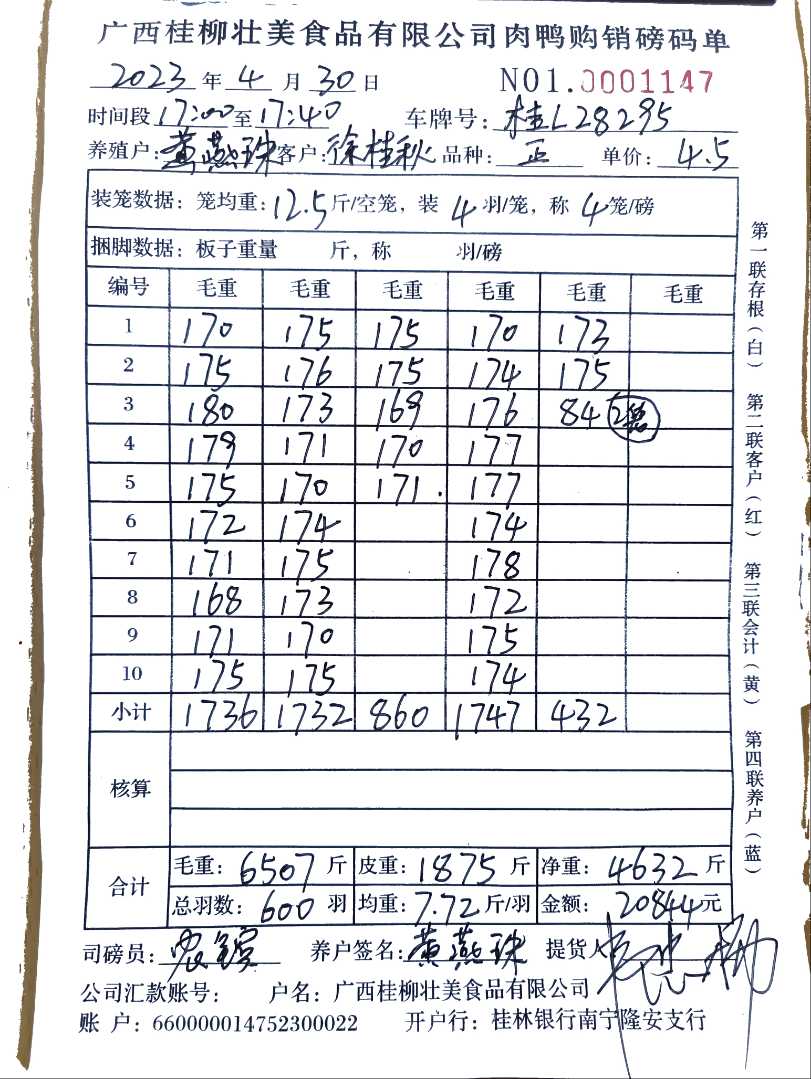 广西桂柳壮美食品有限公司肉鸭购销磅码单
2023 年 4 月 30 日 NO1.0001147
时间段 17:00 至 17:40 车牌号: 桂L28295
养殖户: 黄燕珠 客户: 徐桂秋 品种: 正 单价: 4.5
装笼数据: 笼均重: 12.5 斤/空笼, 装 4 羽/笼, 称 4 笼/磅
捆脚数据: 板子重量 斤, 称 羽/磅
编号 毛重 毛重 毛重 毛重 毛重 毛重
1 170 175 175 170 173
2 175 176 175 174 175
3 180 173 169 176 84 2笼
4 179 171 170 177
5 175 170 171. 177
6 172 174 174
7 171 175 178
8 168 173 172
9 171 170 175
10 175 175 174
小计 1736 1732 860 1747 432
核算
合计
毛重: 6507 斤 皮重: 1875 斤 净重: 4632 斤
总羽数: 600 羽 均重: 7.72 斤/羽 金额: 20844 元
司磅员: 养户签名: 黄燕珠 提货人
公司汇款账号: 户名: 广西桂柳壮美食品有限公司
账 户: 660000014752300022 开户行: 桂林银行南宁隆安支行
第一联存根(白) 第二联客户(红) 第三联会计(黄) 第四联养户(蓝)